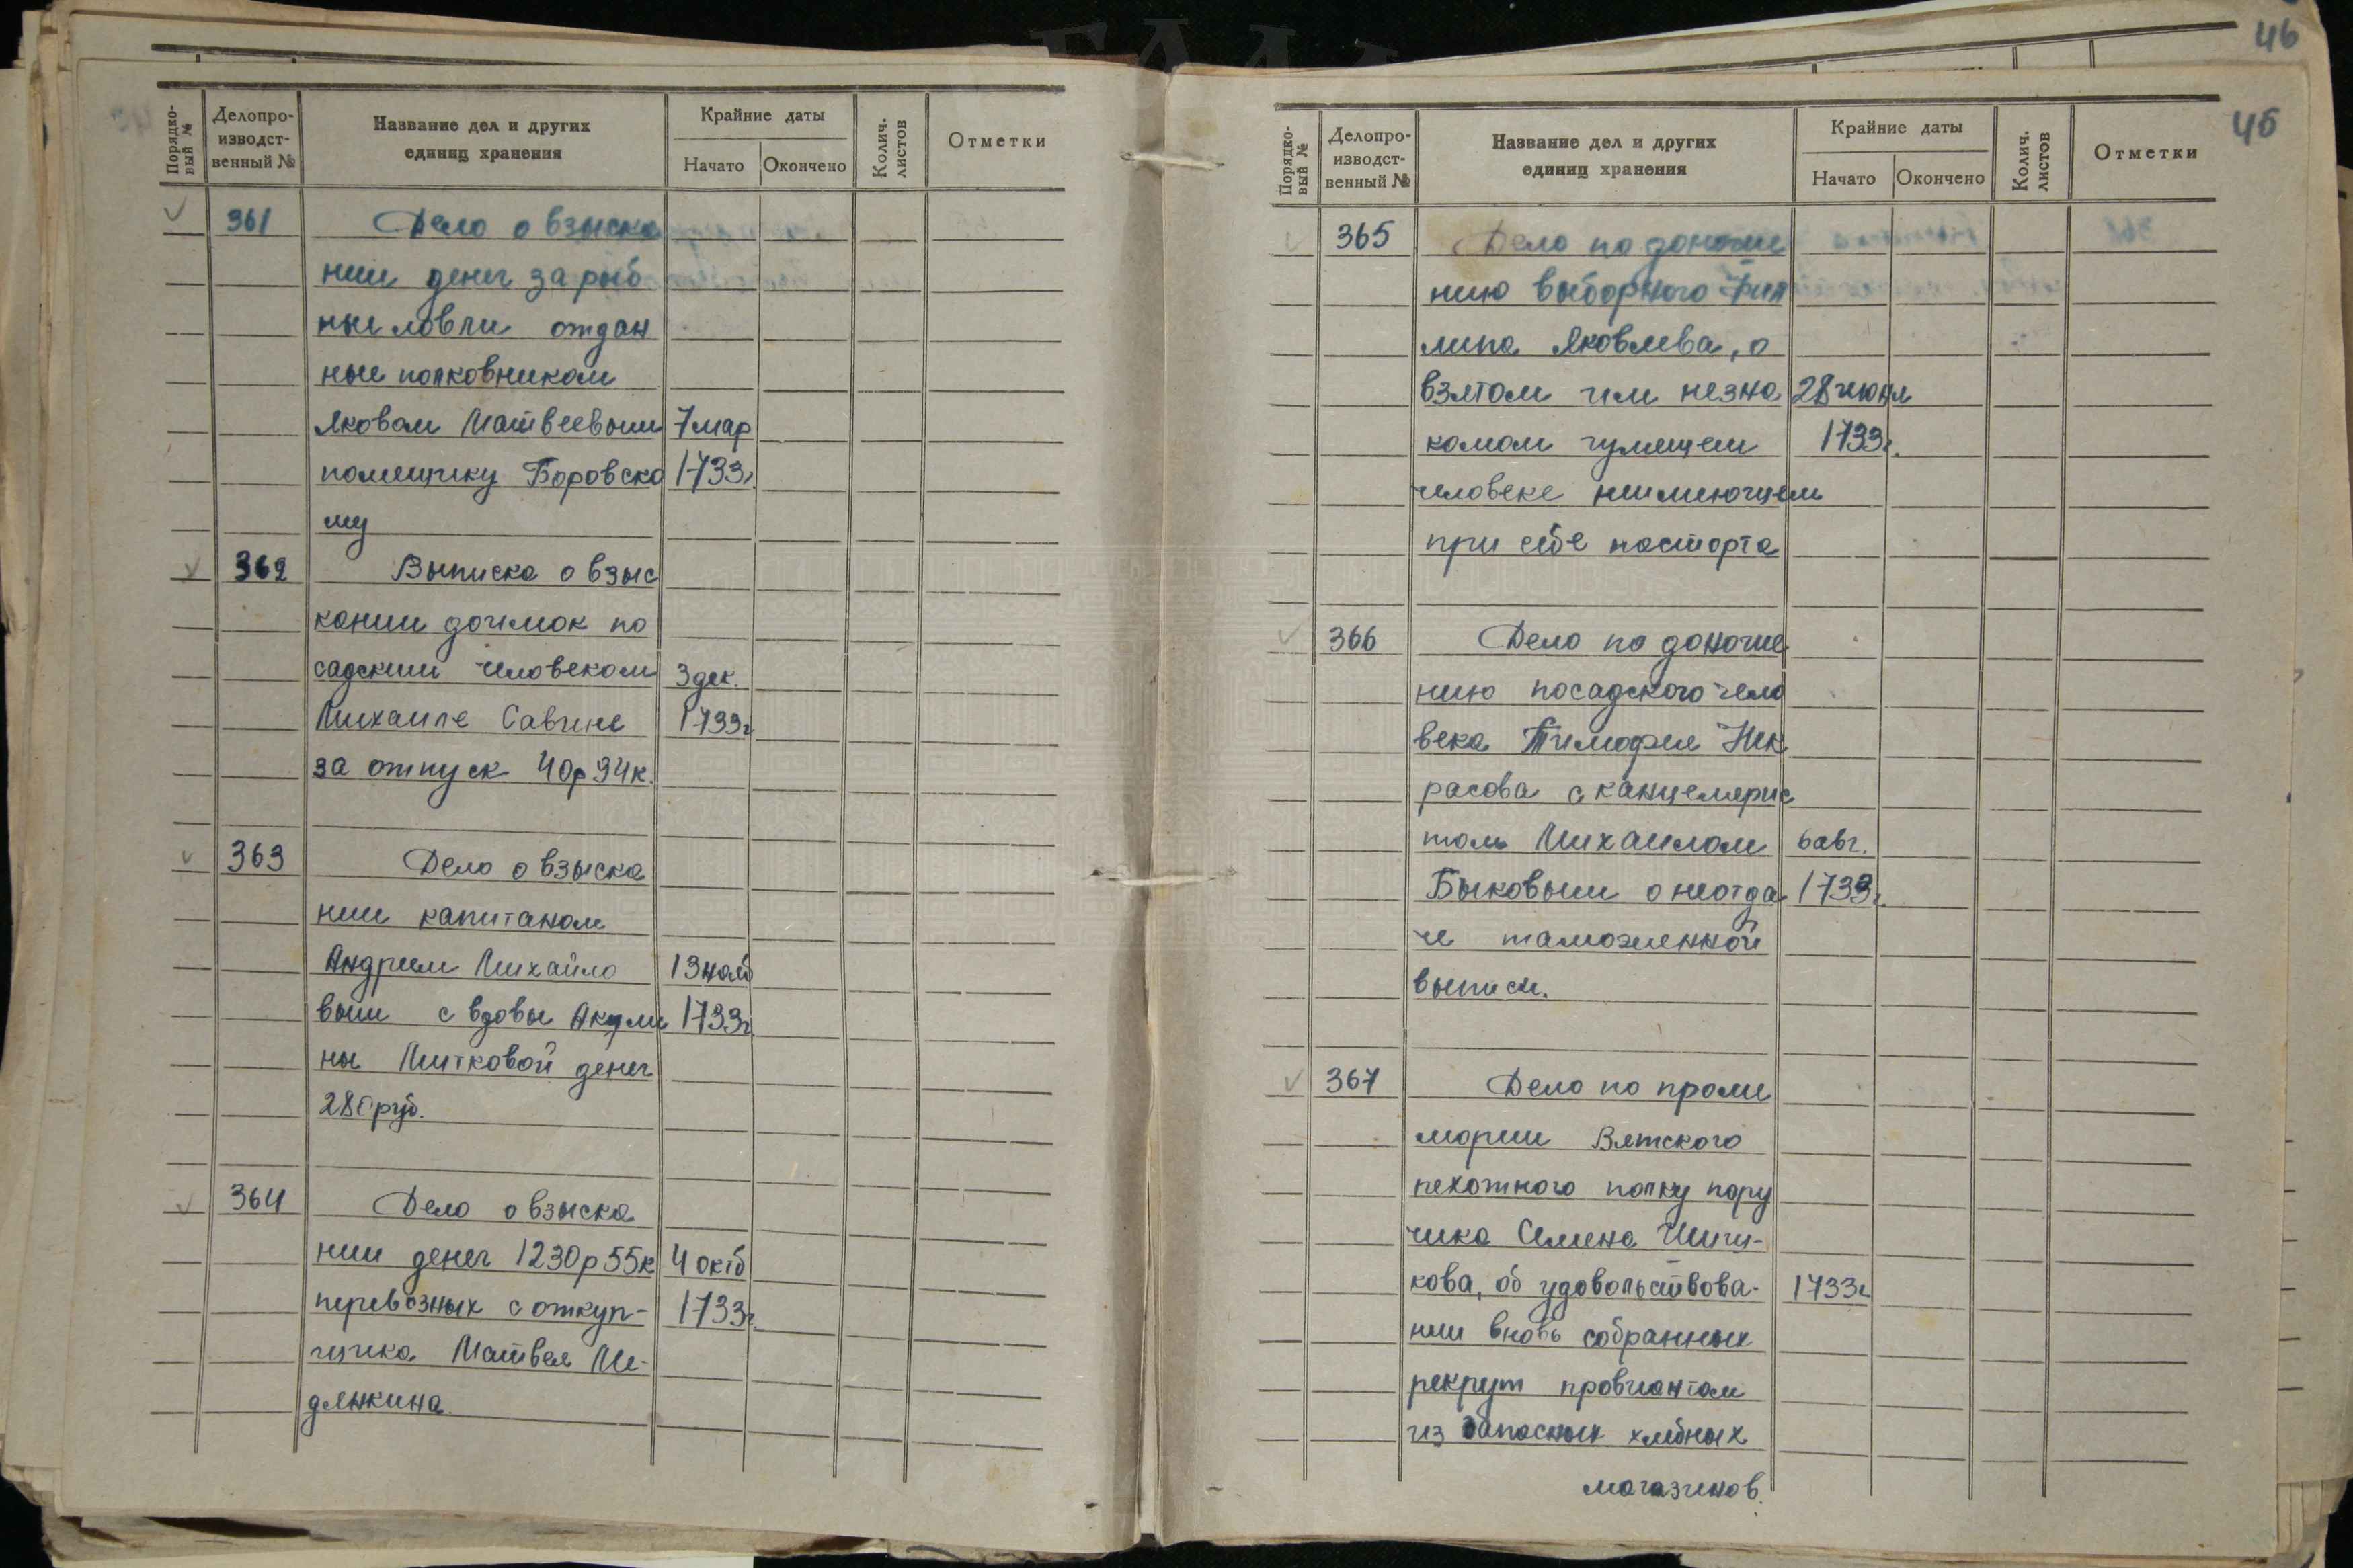 46
Порядко-
вый №
Делопро-
изводст-
венный №
Название дел и других
единиц хранения
Крайние даты
Начато
Окончено
Колич.
листов
Отметки
361 Дело о взыска
нии денег за рыб
ные ловли отдан
ные полковником
Яковом Матвеевым 7 мар
помещику Боровско 1733г.
му
362 Выписка о взыс
кании доимок по
садским человеком 3 дек.
Михаиле Савине 1733г
за отпуск 40р 94к.
363 Дело о взыска
нии капитаном
Андреем Михайло 13 нояб
вым с вдовы Акули 1733г
ны Митковой денег
280 руб.
364 Дело о взыска
нии денег 1230р 55к 4 октб
перевозных с откуп- 1733г.
щика Матвея Ме-
дянкина.
45
Порядко-
вый №
Делопро-
изводст-
венный №
Название дел и других
единиц хранения
Крайние даты
Начато
Окончено
Колич.
листов
Отметки
365 Дело по доноше
нию выборного Фил
липа Яковлева, о
взятом им незна 28 июня
комом гулящем 1733г.
человеке неимеющем
при себе паспорта
366 Дело по доноше
нию посадского чело
века Тимофея Нек
расова с канцелярис
том Михаилом 6 авг.
Быковым о неотда 1733г.
че таможенной
выписи.
367 Дело по проме
мории Вятского
пехотного полку пору
чика Семена Шишу-
кова, об удовольствова- 1733г
нии вновь собранных
рекрут провиантом
из запасных хлебных
магазинов.